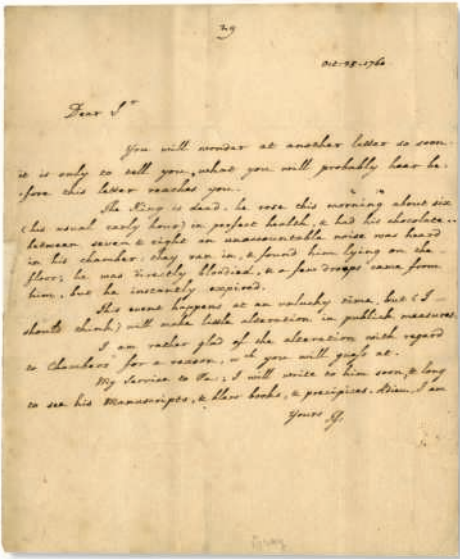 29
Oct. 25. 1760
Dear Sr
You will wonder at another letter so soon.
it is only to tell you, what you will probably hear be-
-fore this letter reaches you.
The King is dead. he rose this morning about six
(his usual early hour) in perfect health, & had his chocolate..
between seven & eight an unaccountable noise was heard
in his chamber; they ran in, & found him lying on the
floor; he was directly blooded, & a few drops came from
him, but he instantly expired.
This event happens at an unlucky time, but (I
should think) will make little alteration in publick measures.
I am rather glad of the alteration with regard
to Chambers for a reason, wch you will guess at.
My Service to Pa: I will write to him soon, & long
to see his Manuscripts, & blew books, & precipices. Adieu, I am
Yours G.
Gray